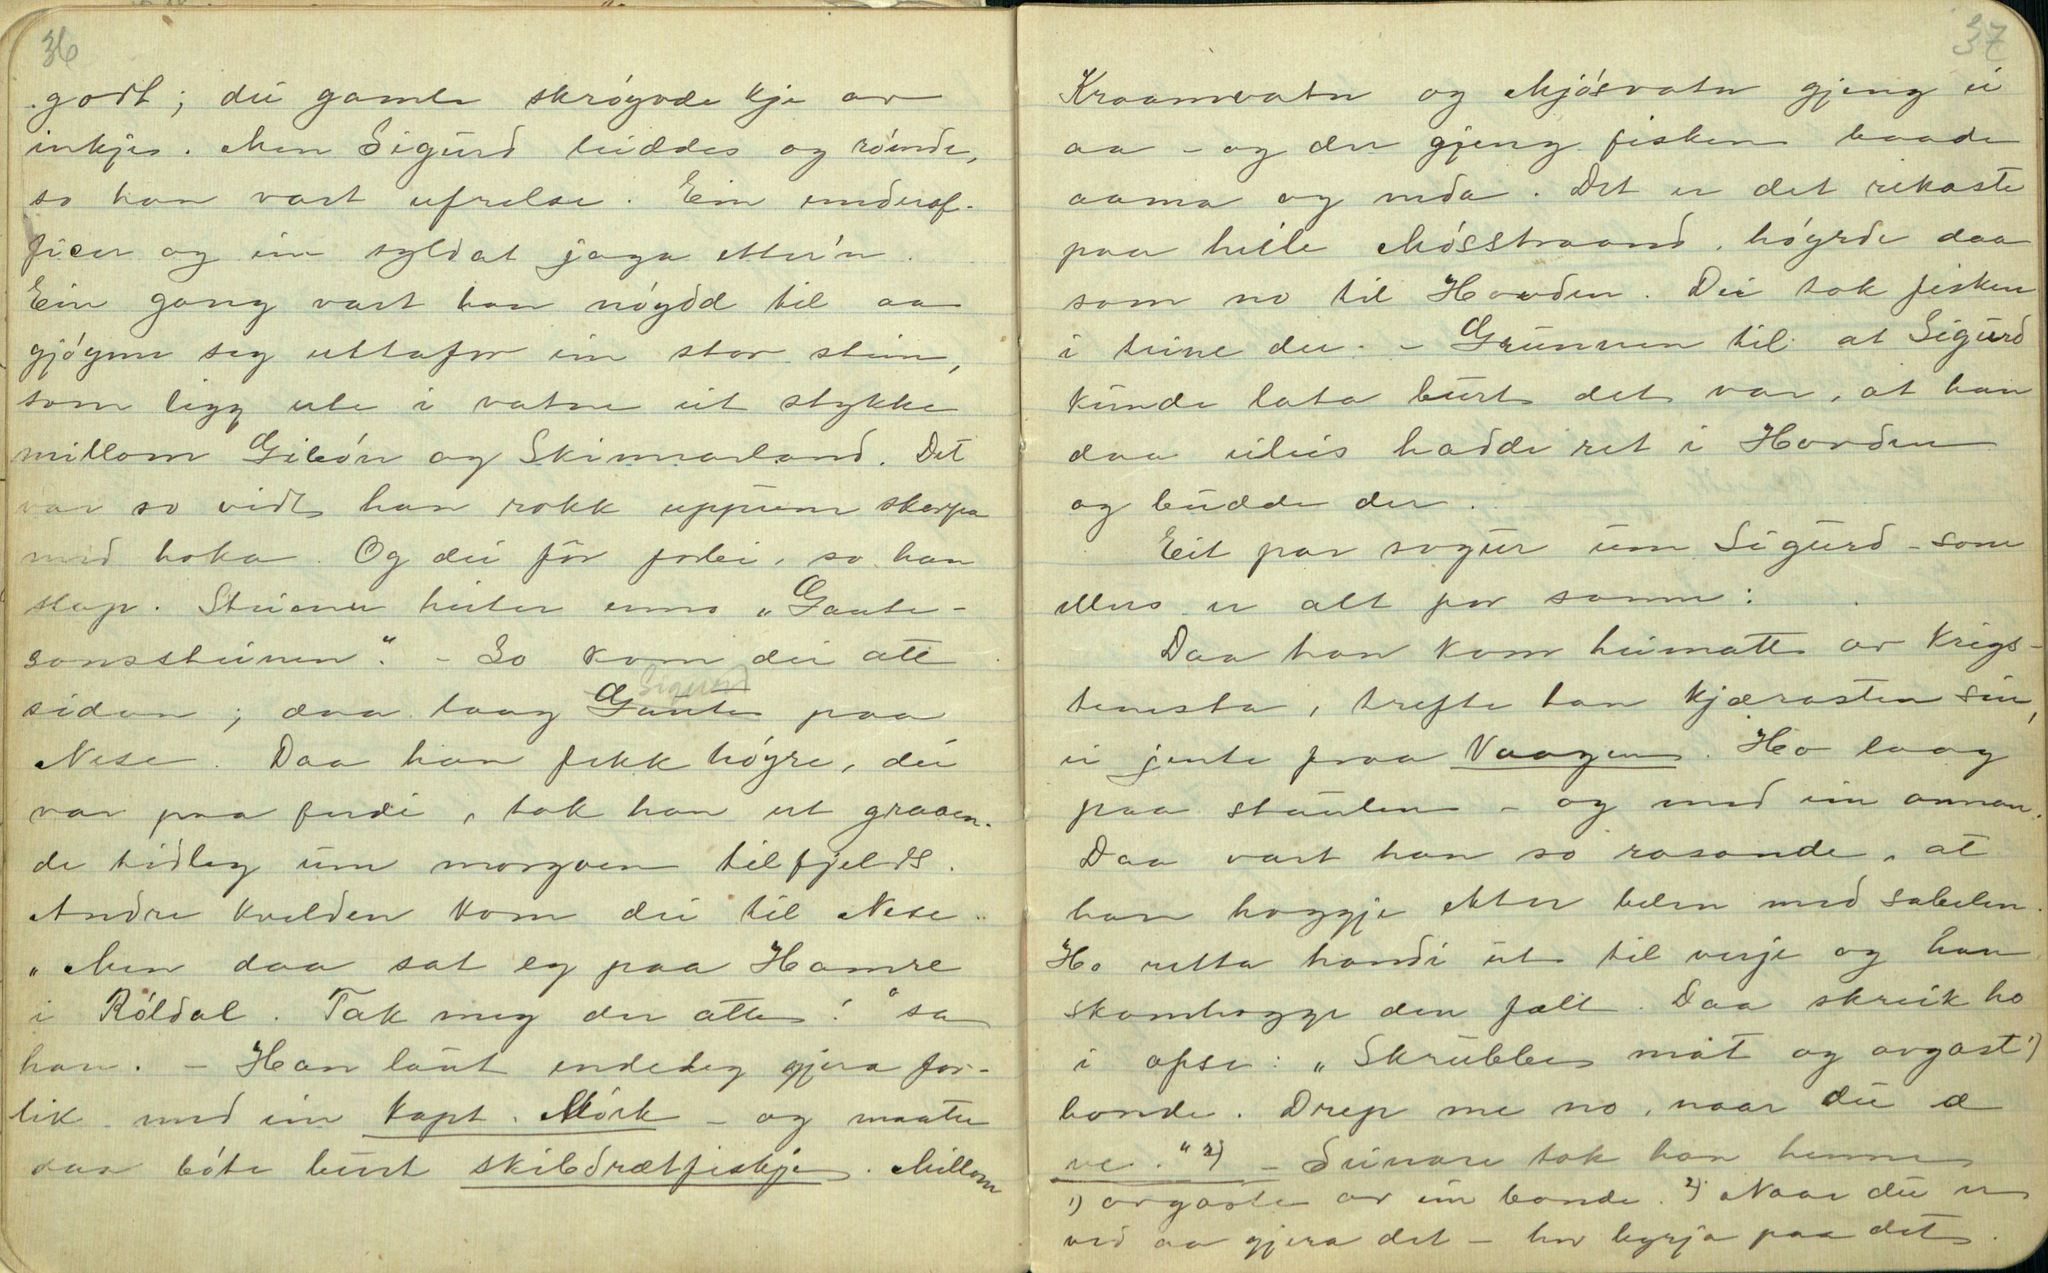 36
godt; dei gamle skrøyvde kje av
inkjes. Men Sigurd leiddes og rømde,
so han vart ufrelse. Ein underof-
ficer og ein syldat jaga etter'n.
Ein gong vart han nøydd til aa
gjøyme seg uttafor ein stor stein,
som ligg ute i vatne eit stykke
millom Gibøn og Skinnarland. Det
var so vidt han rokk uppum skorpa
med hoka. Og dei fór forbi, so han
slap. Steinen heiter enno "Gaute-
sonssteinen". – So kom dei att
sidan; daa laag Gaute Sigurd paa
Nese. Daa han fekk høyre, dei
var paa ferdi, tok han ut graaen-
de tidleg um morgoen tilfjells.
Andre kvelden kom dei til Nese.
"Men daa sat eg paa Hamre
i Røldal. Tak meg der atte!" sa
han. – Han laut endeleg gjera for-
lik med ein Kapt. Mørk – og maatte
daa bøte burt skibdrætfiskje. Millom
37
Kraamvatn og Mjøsvatn gjeng ei
aa – og der gjeng fisken baade
aama og neda. Det er det rikaste
paa heile Møsstraand, høyrde daa
som no til Hovden. Dei tok fisken
i teine der. – Grunnen til at Sigurd
kunde lata burt det var, at han
daa eileis hadde ret i Hovden
og budde der.
Eit par sogur um Sigurd – som
elles er alt for somme:
Daa han kom heimatt av krigs-
tenesta, trefte han kjærasten sin,
ei jente fraa Vaagen. Ho laag
paa staulen – og med ein annan.
Daa vart han so rasande, at
han hoggje etter belen med sabelen.
Ho retta handi ut til verje og han
skamhogge den fælt. Daa skreik ho
i øfse: "Skrubbe mat og avgast 1)
bonde. Drep me no, naar du æ
ve." 2) – Seinare tok han henne
1) avgaste av ein bonde. 2) Naar du er
ved aa gjera det – hev byrja paa det.